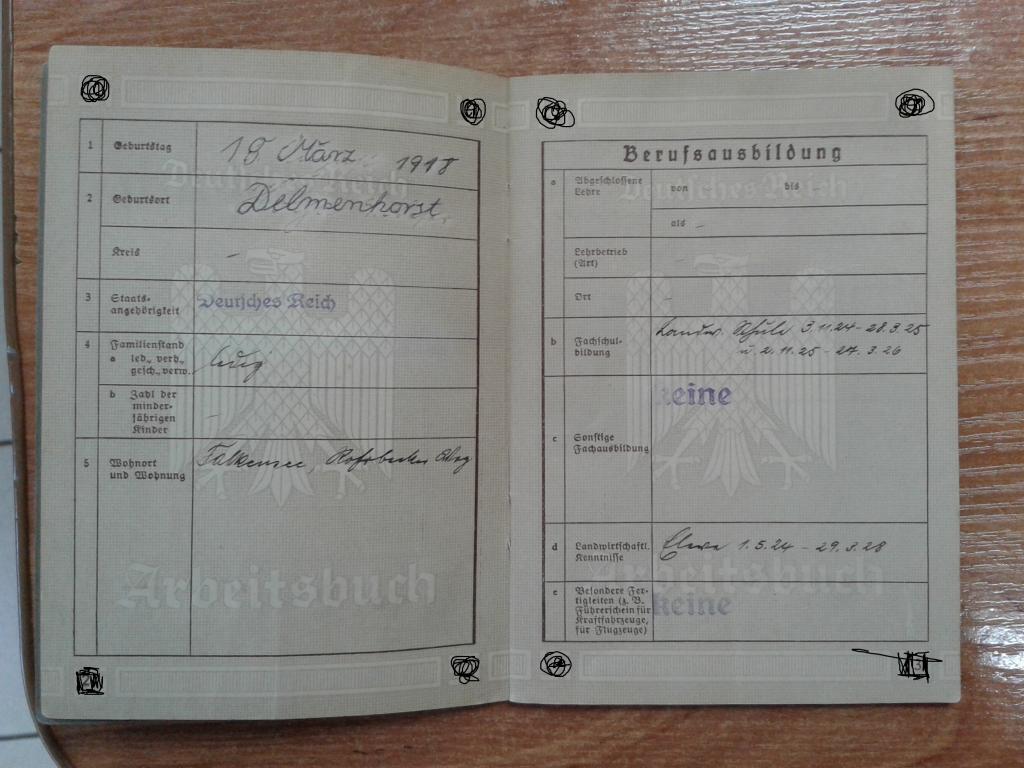 1 Geburtstag 19 März 1918
Deutsches Reich
2 Geburtsort Delmenhorst
Kreis –
3 Staats-
angehörigkeit Deutsches Reich
4 Familienstand
a led., verh.,
gesch., verw. ledig
b Zahl der
minder-
jährigen
Kinder –
5 Wohnort
und Wohnung Falkensee, Rohrbecker Weg
Arbeitsbuch
Berufsausbildung
Deutsches Reich
a Abgeschlossene
Lehre von bis
als –
Lehrbetrieb
(Art)
Ort –
b Fachschul-
bildung Landw. Schule 3.11.24 - 28.3.25
u. 2.11.25 - 27.3.26
c Sonstige
Fachausbildung keine
d Landwirtschaftl.
Kenntnisse 1.5.24 - 29.3.28
Arbeitsbuch
e Besondere Fer-
tigkeiten (z. B.
Führerschein für
Kraftfahrzeuge,
für Flugzeuge) keine